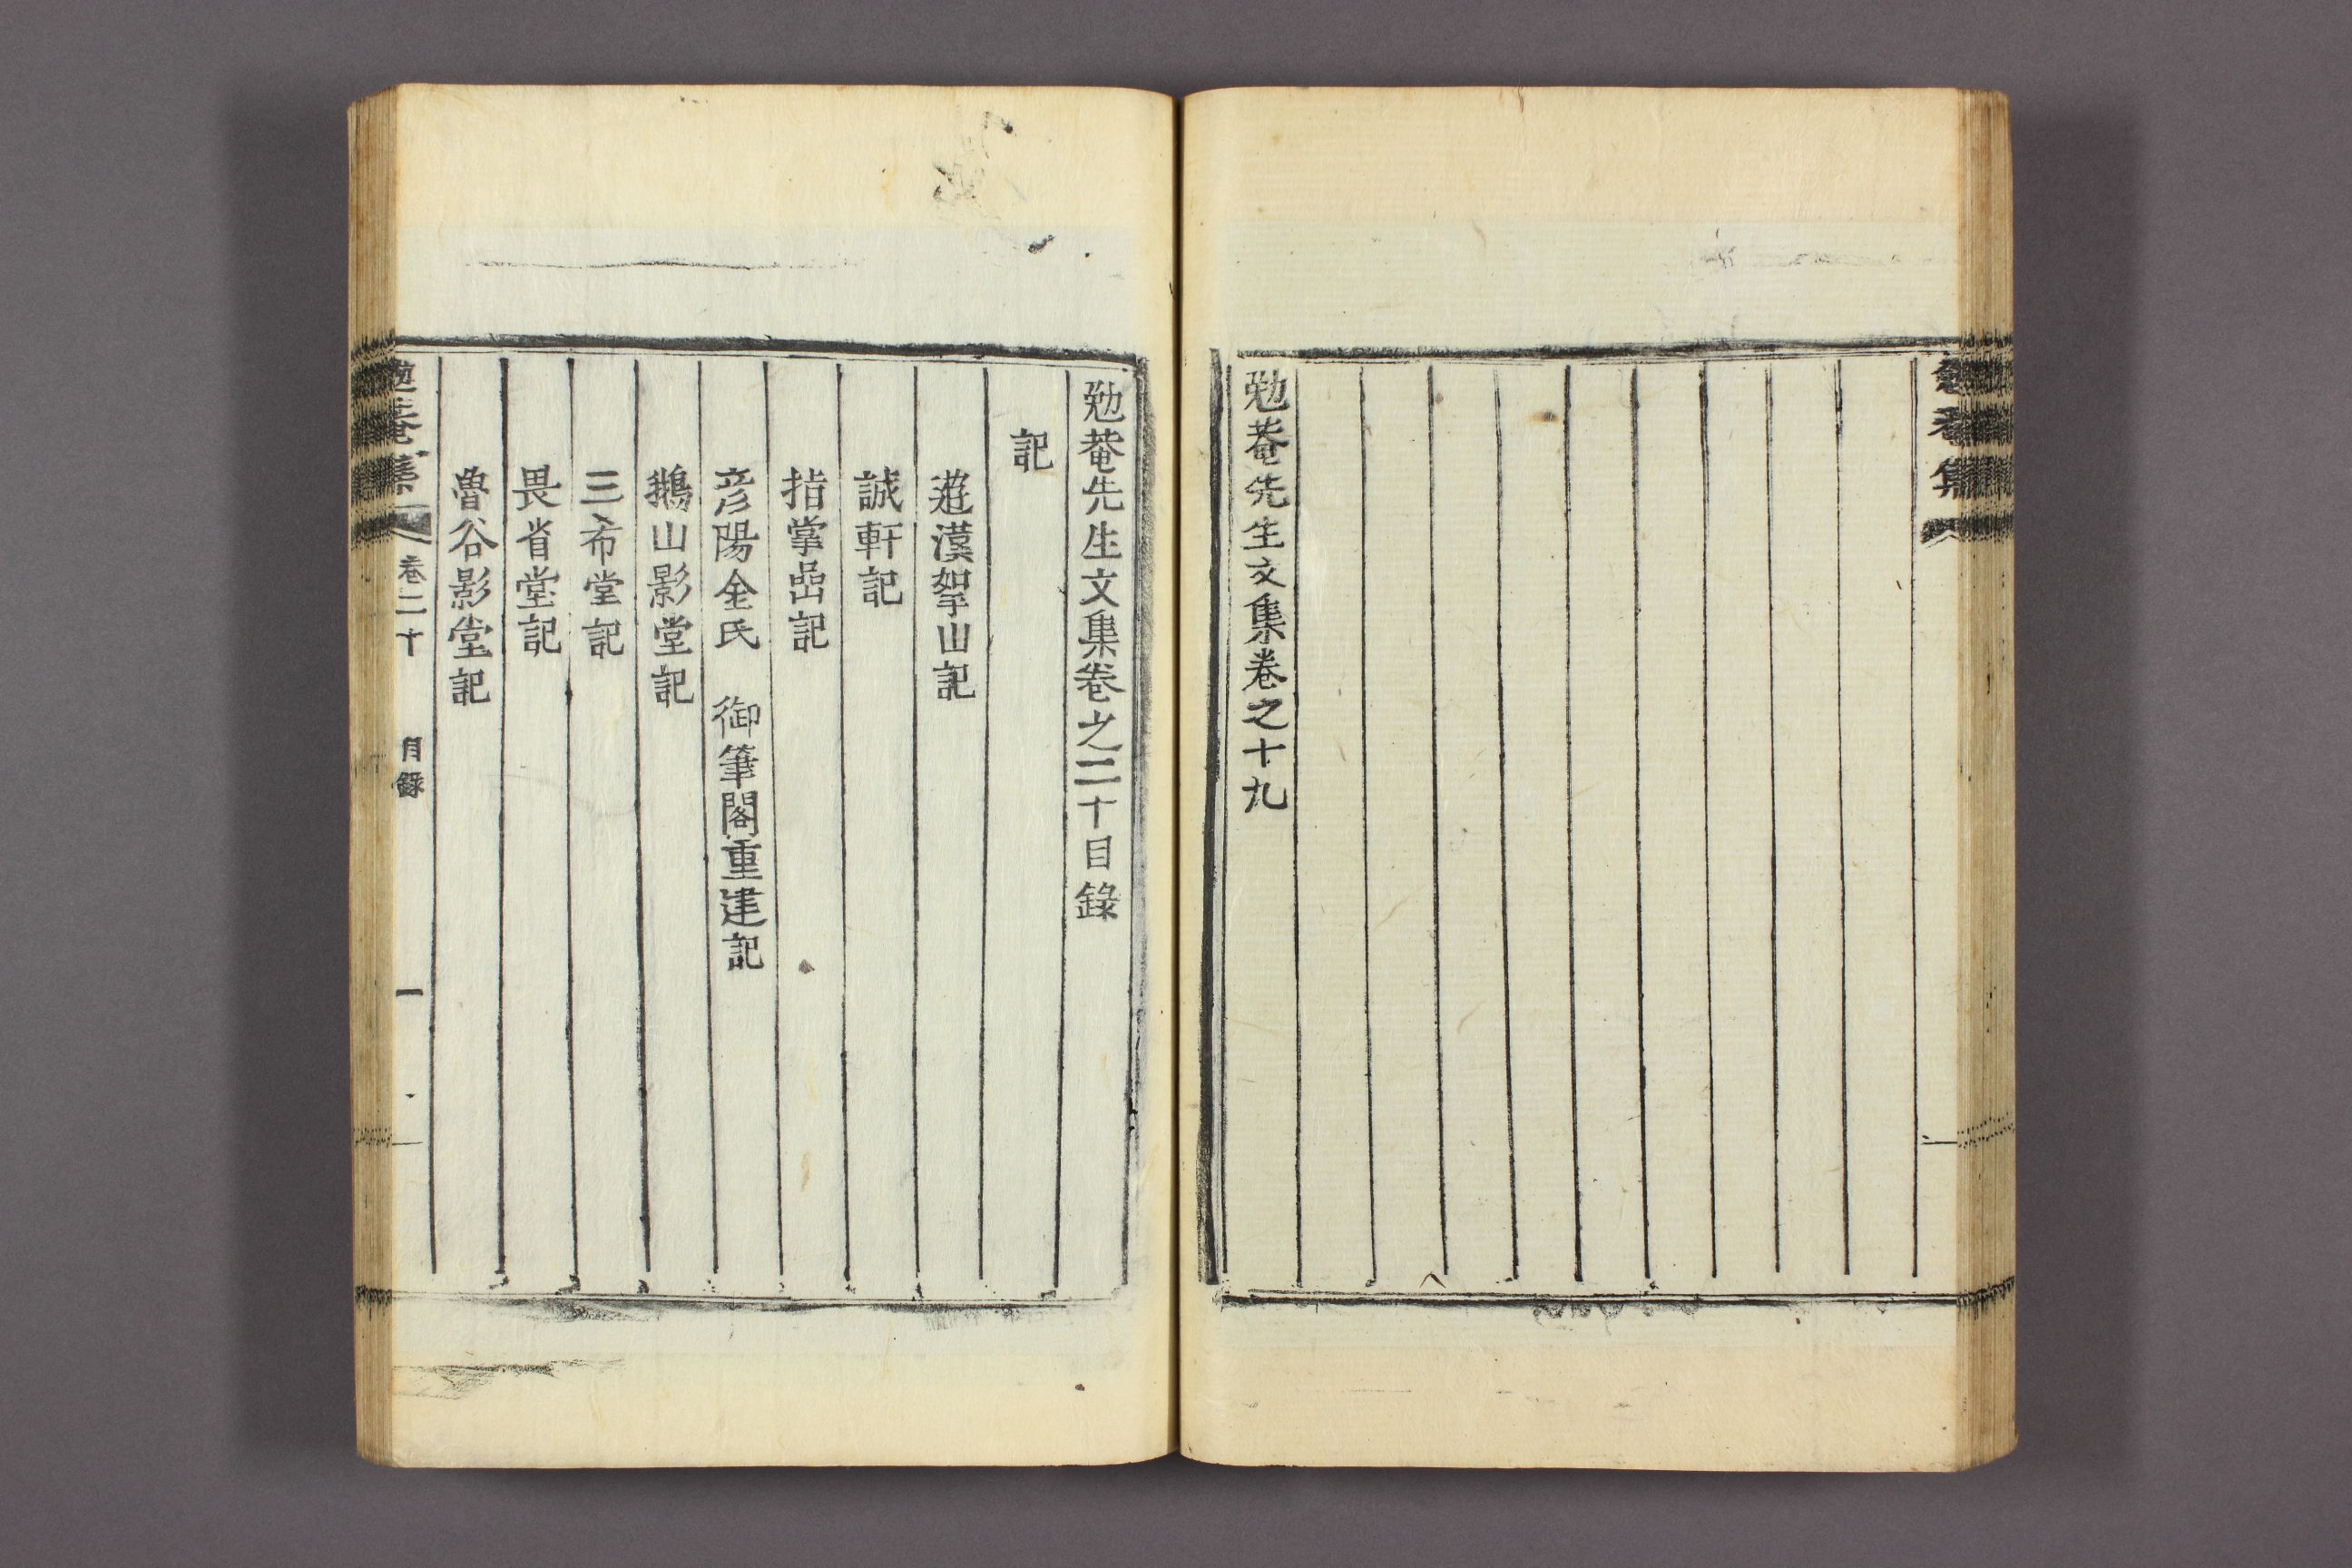 勉菴集
勉菴先生文集卷之十九
勉菴先生文集卷之二十目錄
記
遊漢挐山記
誠軒記
指掌嵒記
彦陽金氏 御筆閣重建記
鵝山影堂記
三希堂記
畏省堂記
魯谷影堂記
勉菴集 卷二十 目錄 一